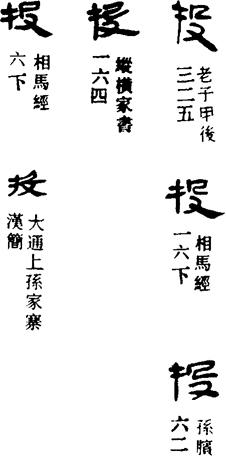 投
老子甲後
三二五
投
相馬經
一六下
投
孫臏
六二
投
縱橫家書
一六四
投
相馬經
六下
投
大通上孫家寨
漢簡